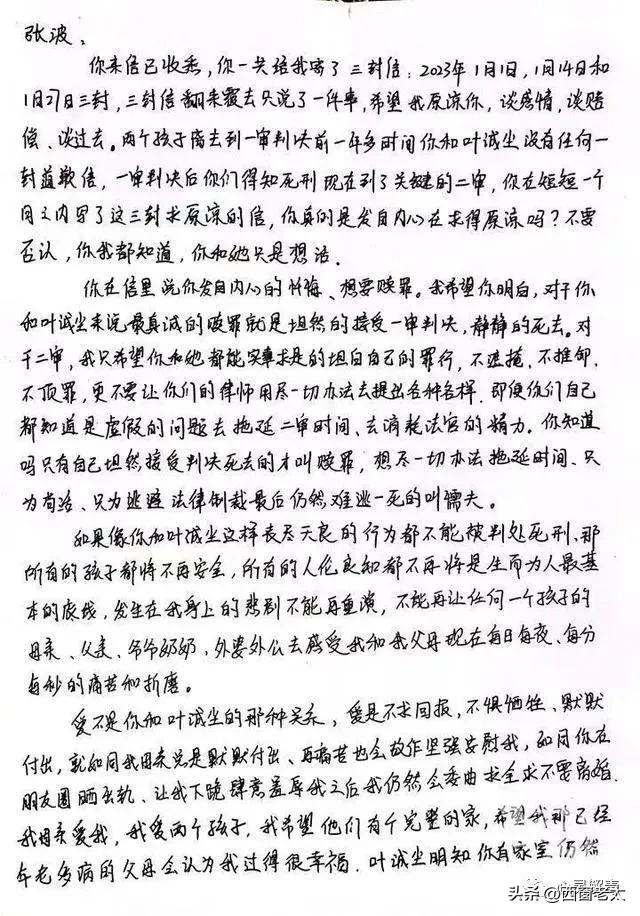 张波:
你来信已收悉,你一共给我寄了三封信:2023年1月1日,1月14日和
1月27日三封,三封信翻来覆去只说了一件事,希望我原谅你,谈感情,谈赔
偿、谈过去。两个孩子离去到一审判决前一年多时间你和叶诚尘没有任何一
封道歉信,一审判决后你们得知死刑现在到了关键的二审,你在短短一个
月之内写了这三封求原谅的信,你真的是发自内心在求得原谅吗?不要
否认,你我都知道,你和她只是想活.
你在信里说你发自内心的忏悔、想要赎罪。我希望你明白,对于你
和叶诚尘来说最真诚的赎罪就是坦然的接受一审判决,静静的死去。对
于二审,我只希望你和她都能实事求是的坦白自己的罪行,不遮掩,不推卸,
不顶罪,更不要让你们的律师用尽一切办法去提出各种各样,即便你们自己
都知道是虚假的问题去拖延二审时间、去消耗法官的精力。你知道
吗只有自己坦然接受判决死去的才叫赎罪,想尽一切办法拖延时间、只
为苟活、只为逃避法律制裁最后仍然难逃一死的叫懦夫。
如果像你和叶诚尘这样丧尽天良的行为都不能被判处死刑、那
所有的孩子都将不再安全,所有的人伦良知都不再将是生而为人最基
本的底线,发生在我身上的悲剧不能再重演,不能再让任何一个孩子的
母亲、父亲、爷爷奶奶,外婆外公去感受我和我父母现在每日每夜、每分
每秒的痛苦和折磨。
爱不是你和叶诚尘的那种关系,爱是不求回报,不惧牺牲、默默
付出,就如同我母亲总是默默付出、再痛苦也会故作坚强安慰我,如同你在
朋友圈晒出轨、让我下跪肆意羞辱我之后我仍然会委曲求全求不要离婚.
我母亲爱我,我爱两个孩子,我希望他们有个完整的家,希望我那已经
年老多病的父母会认为我过得很幸福.叶诚尘明知你有家室仍然
头条 @西窗老太